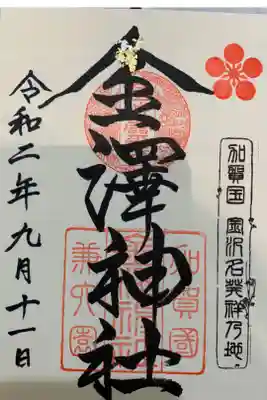 加賀国 金沢名発祥乃地
金澤神社
加賀國
兼六園
令和二年九月十一日